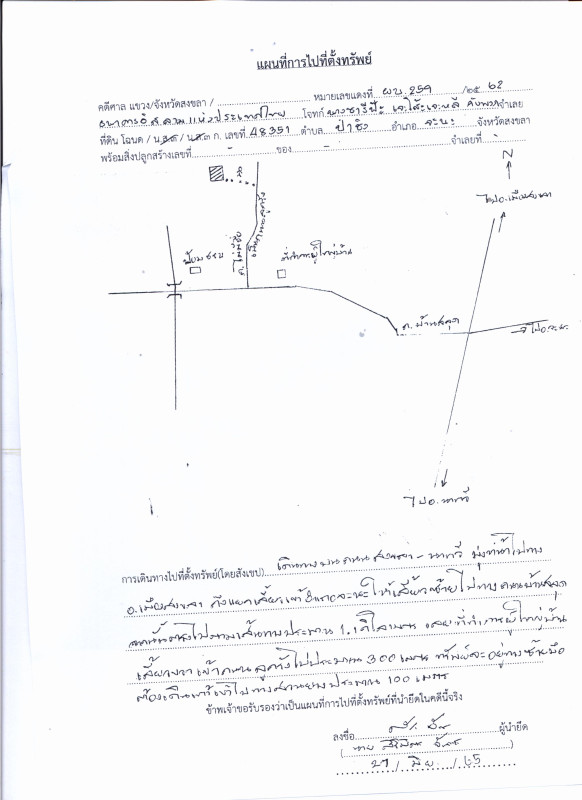 แผนที่การไปที่ตั้งทรัพย์
คดีศาล แขวง/จังหวัดสงขลา / หมายเลขแดงที่ ผบ.259 /๒๕ 62
ธนาคารอิสลามแห่งประเทศไทย โจทก์ จำเลย
ที่ดิน โฉนด / น.ส.๓ / น.ส.๓ ก. เลขที่ 48351 ตำบล ป่าชิง อำเภอ จะนะ จังหวัดสงขลา
พร้อมสิ่งปลูกสร้างเลขที่ - ของ - จำเลยที่ -
N
ไปอ.เมืองสงขลา
ป้อม ชรบ
ถ.ไม่มีชื่อ
เป็นถนนลูกรัง
ที่ทำการผู้ใหญ่บ้าน
ไปอ.จะนะ
ไปอ.นาทวี
การเดินทางไปที่ตั้งทรัพย์(โดยสังเขป) เดินทางบนถนน สงขลา - นาทวี มุ่งหน้าไปทาง
อ.เมืองสงขลา ถึงแยกเลี้ยวเข้าอำเภอจะนะ ให้เลี้ยวซ้ายไปทางถนนบ้าน
ตรงไปตามเส้นทางประมาณ 1.1 กิโลเมตร เลยที่ทำการผู้ใหญ่บ้าน
เลี้ยวขวา เข้าถนนลูกรังไปประมาณ 300 เมตร ทรัพย์จะอยู่ทางซ้ายมือ
ต้องเดินเท้าเข้าไปทางสวนยางประมาณ 100 เมตร
ข้าพเจ้าขอรับรองว่าเป็นแผนที่การไปที่ตั้งทรัพย์ที่นำยึดในคดีนี้จริง
ลงชื่อ ผู้นำยึด
( นาย )
27 / มิย. / 65